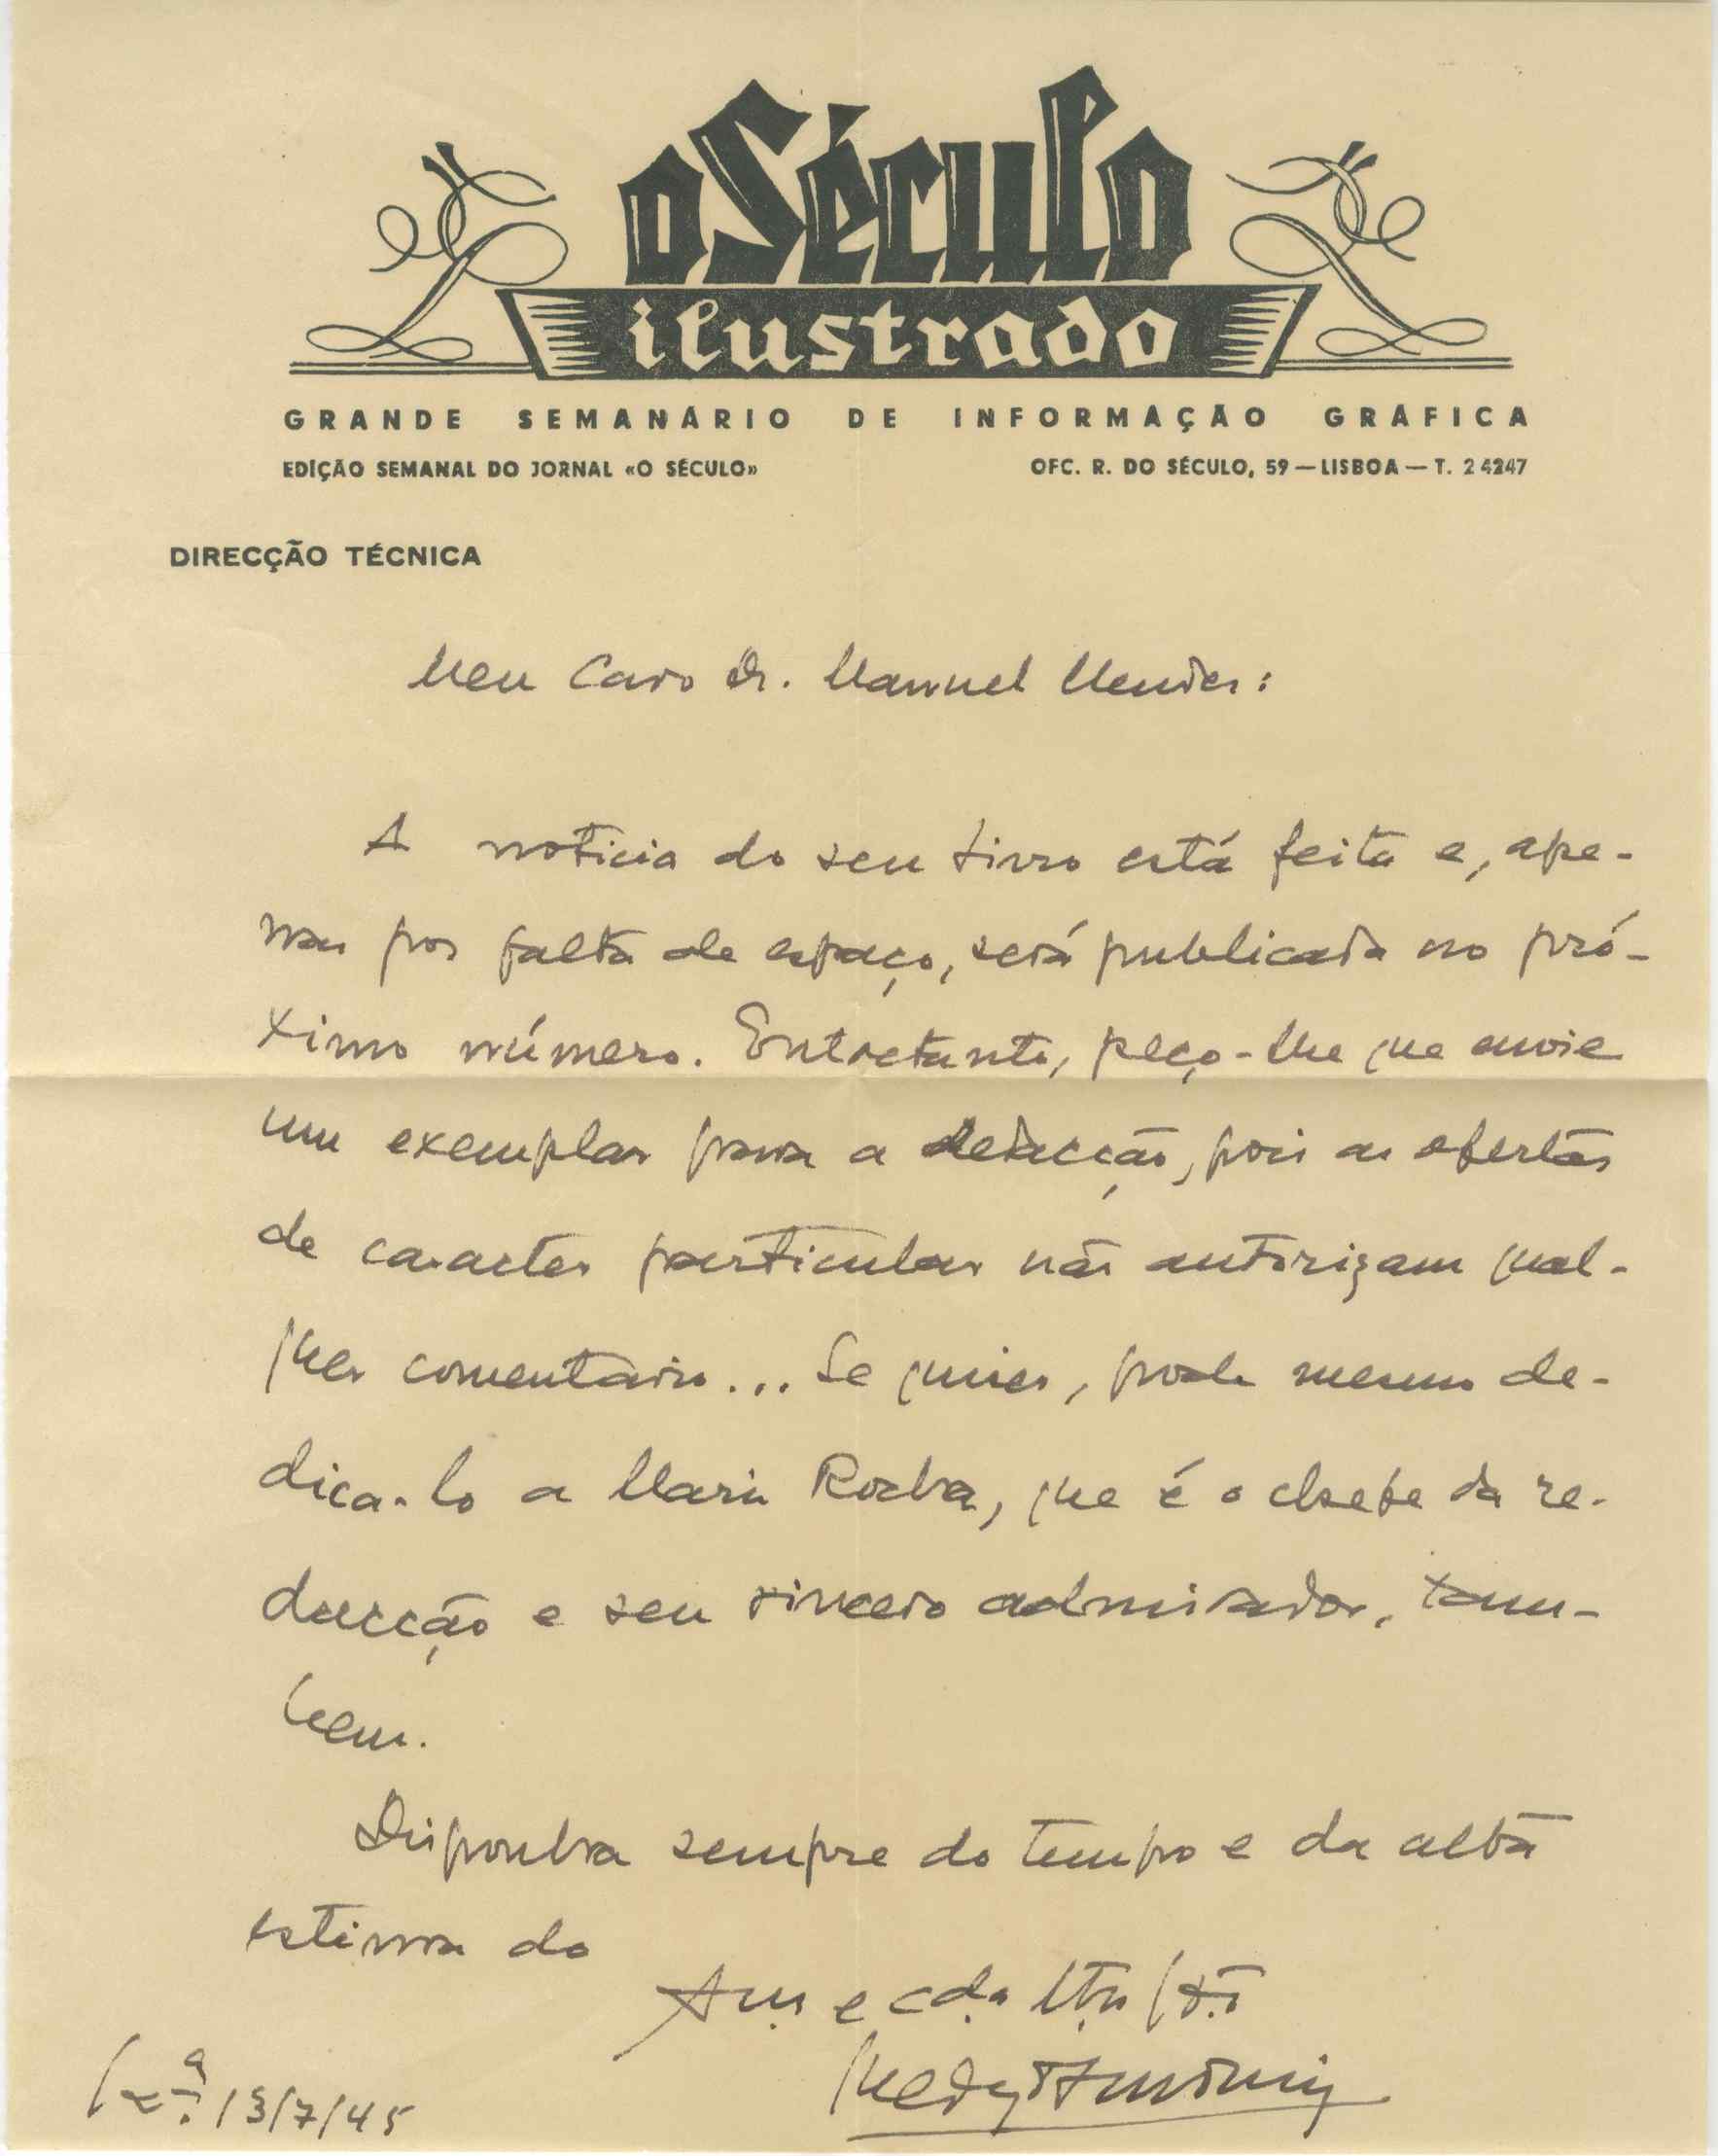 o Século
ilustrado
GRANDE SEMANÁRIO DE INFORMAÇÃO GRÁFICA
EDIÇÃO SEMANAL DO JORNAL «O SÉCULO»
OFC. R. DO SÉCULO, 59 — LISBOA — T. 24247
DIRECÇÃO TÉCNICA
Meu Caro Dr. Manuel Mendes:
A noticia do seu livro está feita e, ape-
nas por falta de espaço, será publicada no pró-
ximo número. Entretanto, peço-lhe que envie
um exemplar para a redacção, pois as ofertas
de caracter particular não autorizam qual-
quer comentario... Se quiser, pode mesmo de-
dica-lo a Mario Rocha, que é o chefe da re-
dacção e seu sincero admirador, tam-
bem.
Disponha sempre do tempo e da alta
estima do
Am. e cdo. mto.
13/7/45